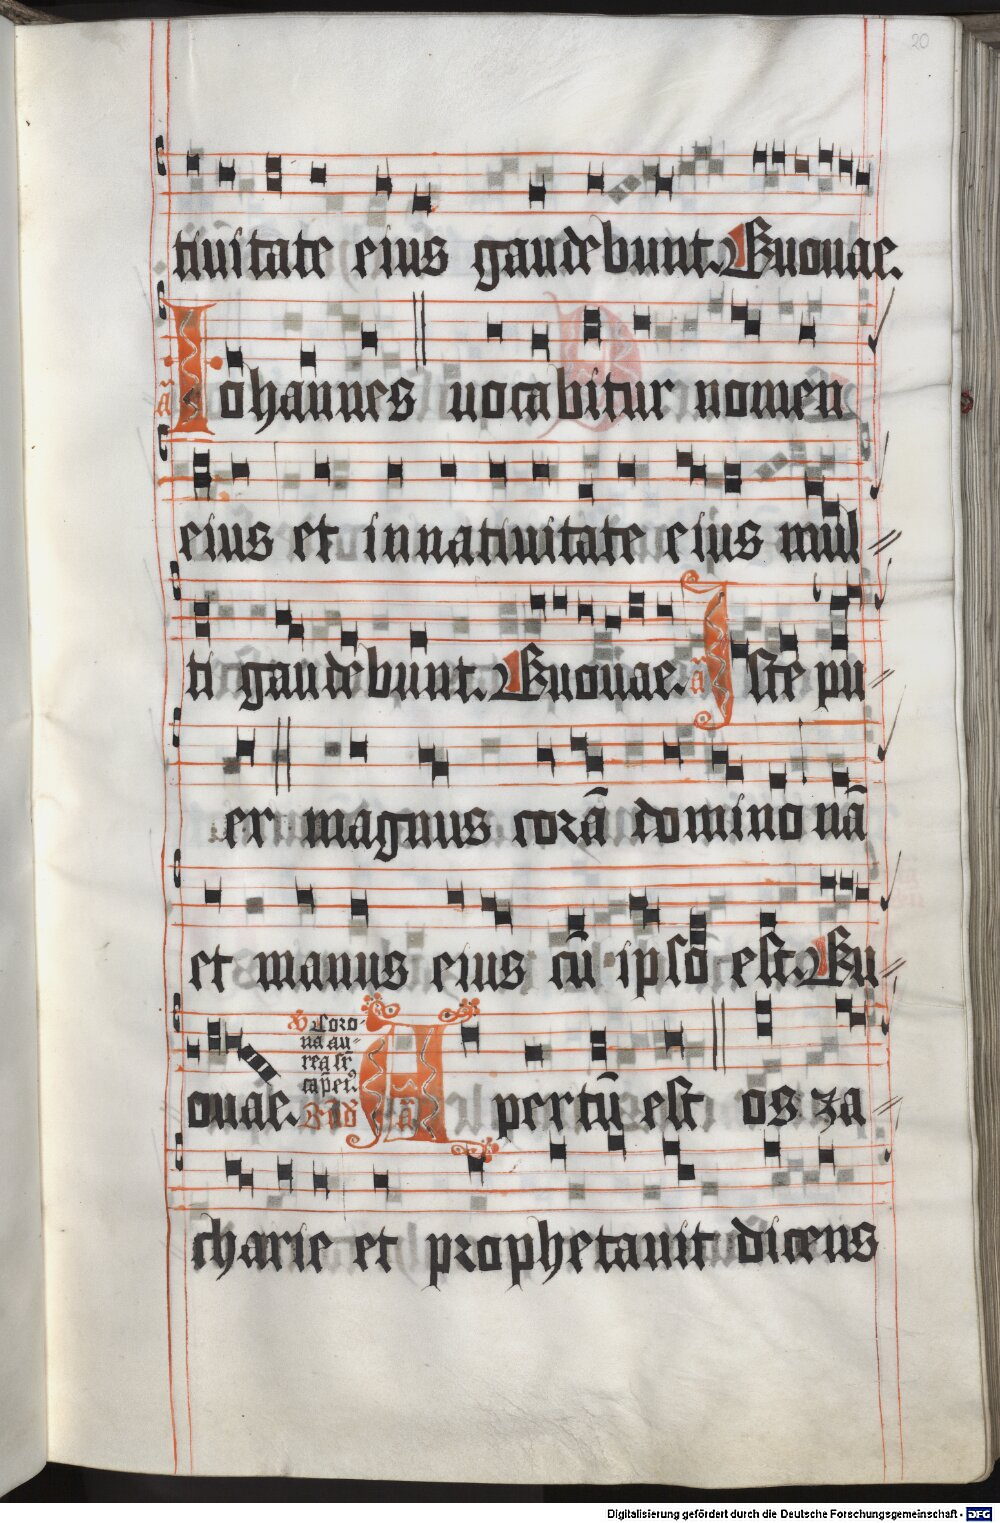 20
tiuitate eius gaudebunt. Euouae.
ā Iohannes uocabitur nomen
eius et in natiuitate eius mul
ti gaudebunt. Euouae. ā Iste pu
er magnus corā domino nā
et manus eius cū ipso est. Eu
Coro
na au
rea sr̄
cap̄ ei9
ouae. ā Apertū est os za
charie et prophetauit dicens
Digitalisierung gefördert durch die Deutsche Forschungsgemeinschaft - DFG